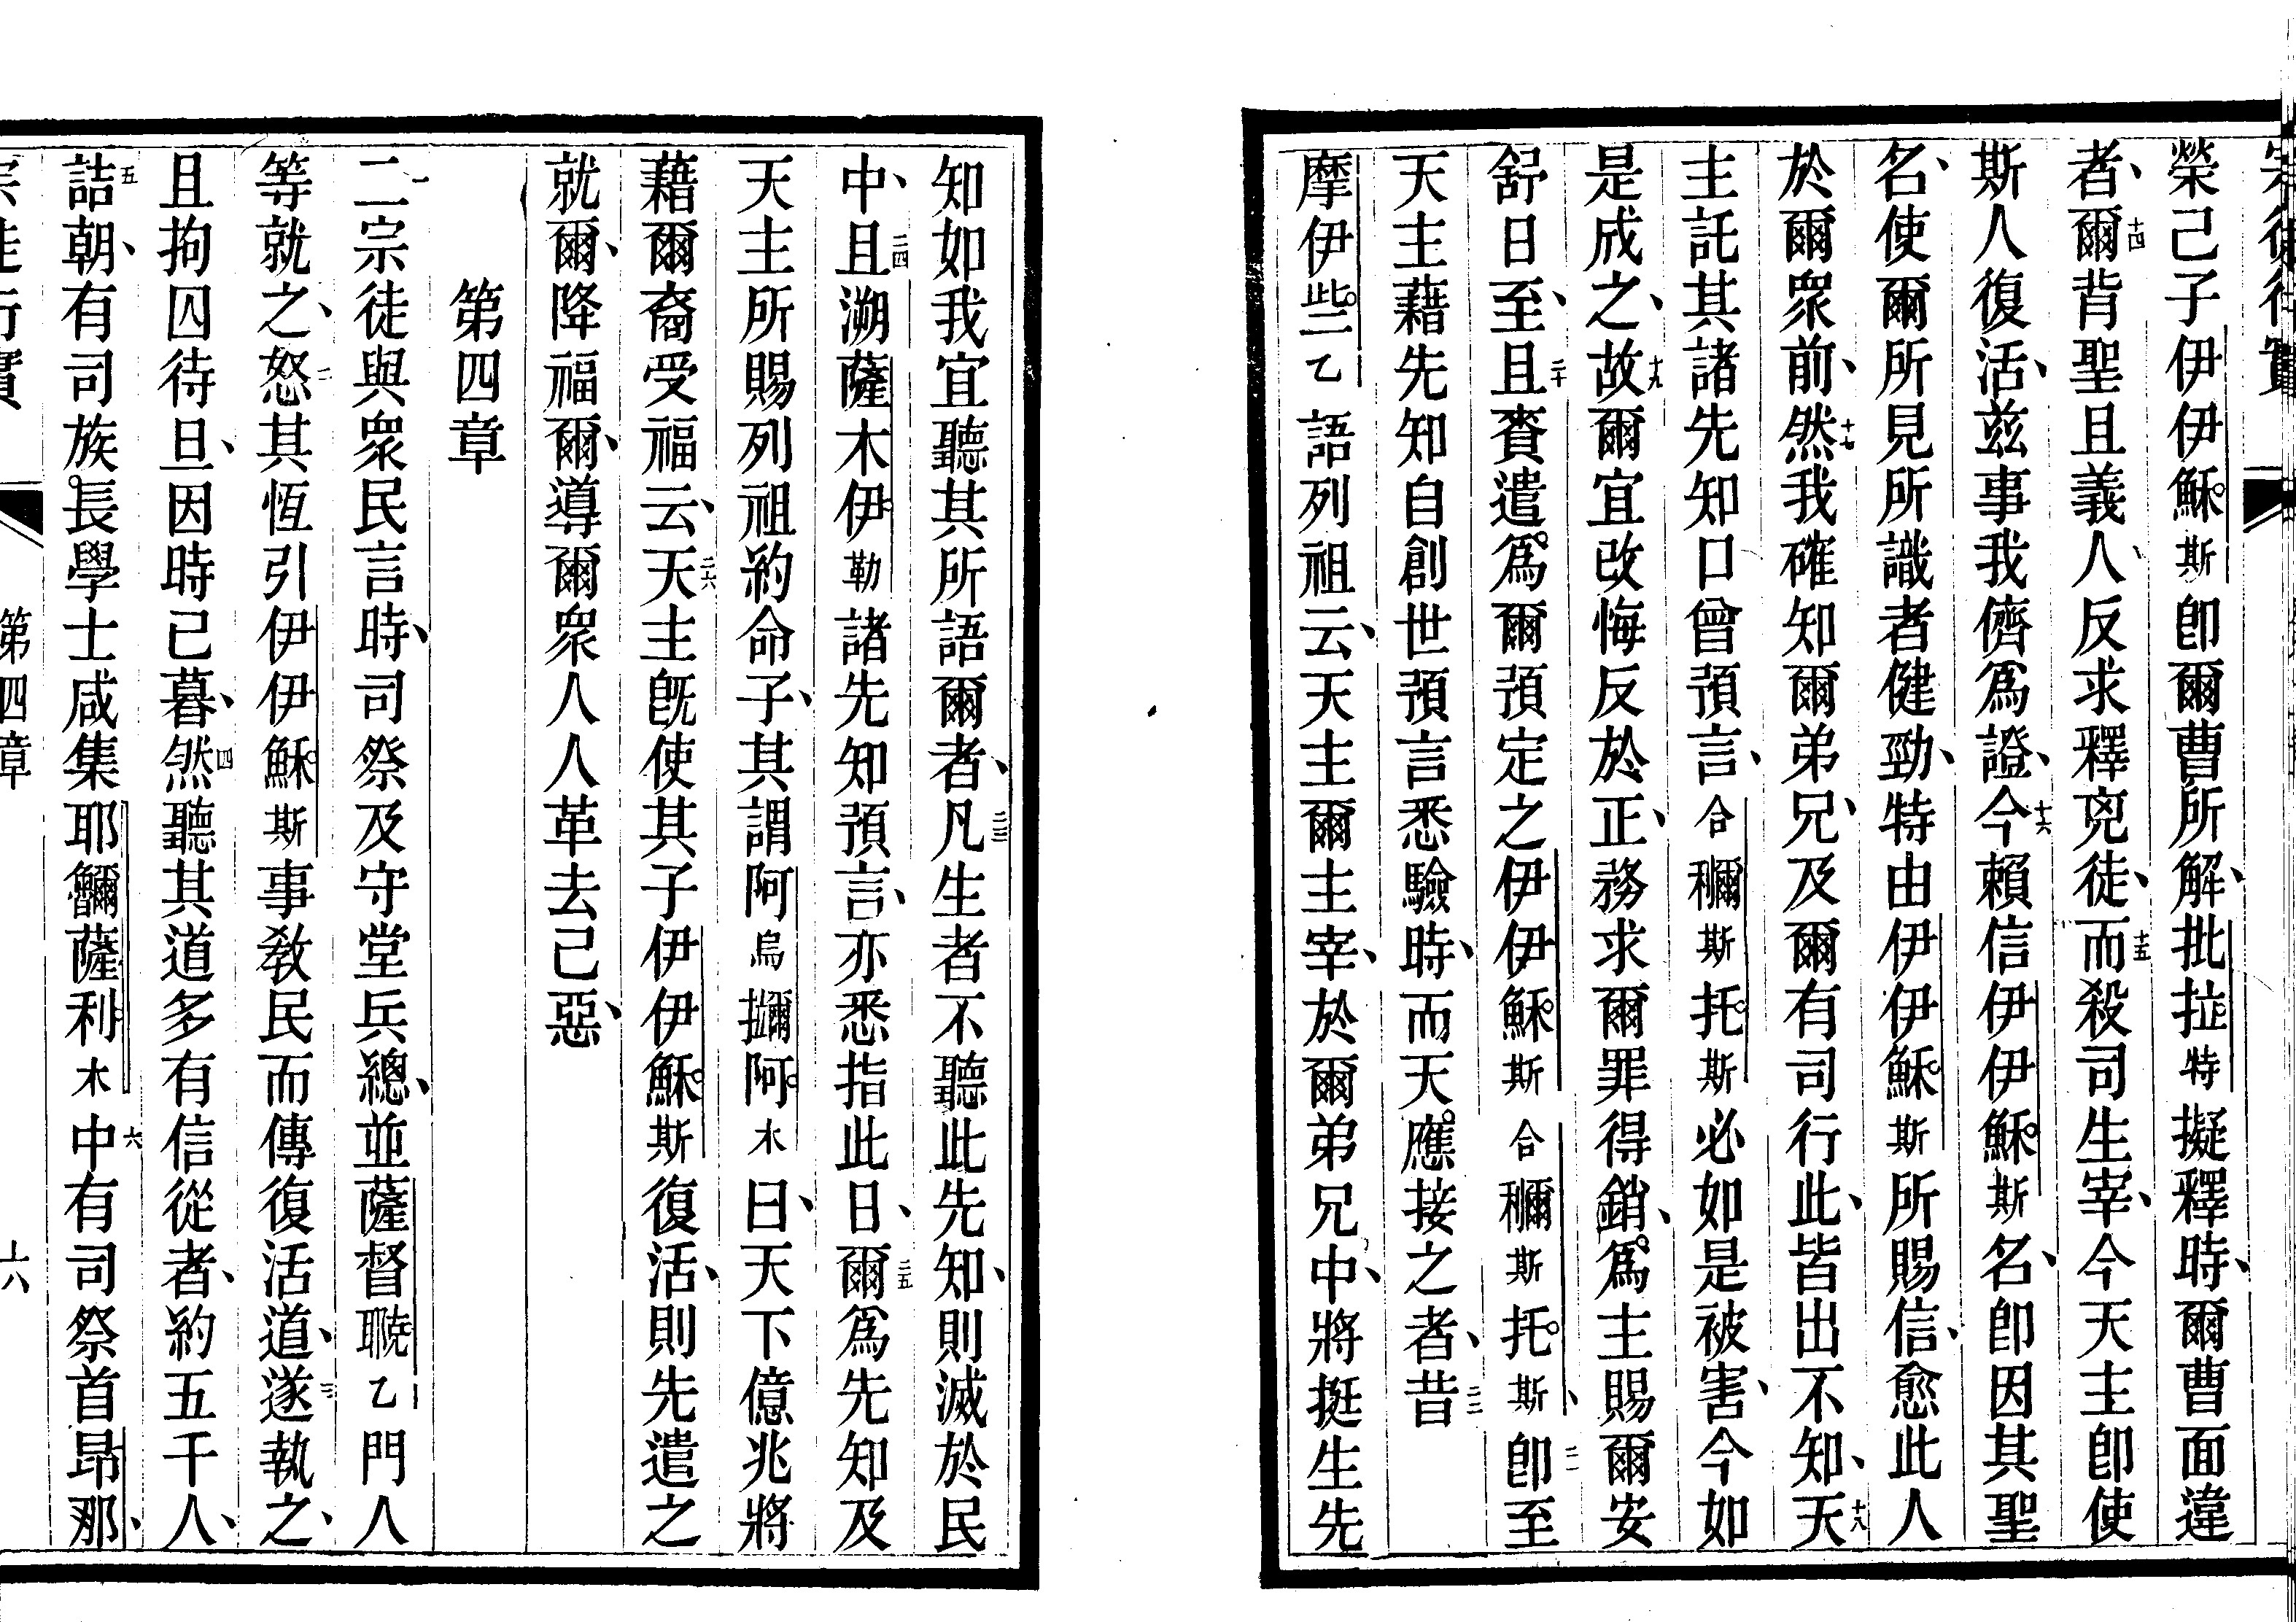 宗徒行實
榮己子伊伊穌斯卽爾曹所解、批拉特擬釋時、爾曹面違
者、十四爾背聖且義人、反求釋兇徒、十五而殺司生宰、今天主卽使
斯人復活、茲事我儕爲證、十六今賴信伊伊穌斯名、卽因其聖
名、使爾所見所識者健勁、特由伊伊穌斯所賜信、愈此人
於爾眾前、十七然我確知爾弟兄、及爾有司行此、皆出不知、十八天
主託其諸先知口曾預言、合穪斯托斯必如是被害、今如
是成之、十九故爾宜改悔反於正、務求爾罪得銷、爲主賜爾安
舒日至、二十且賚遣爲爾預定之伊伊穌斯合穪斯托斯、二一卽至
天主藉先知自創世預言悉驗時、而天應接之者、二二昔
摩伊些乙語列祖云、天主爾主宰、於爾弟兄中、將挺生先
知如我宜聽其所語爾者、二三凡生者不聽此先知、則滅於民
中、二四且溯薩木伊勒諸先知預言、亦悉指此日、二五爾爲先知及
天主所賜列祖約命子、其謂阿烏擟阿木曰、天下億兆將
藉爾裔受福云、二六天主旣使其子伊伊穌斯復活、則先遣之
就爾、降福爾、導爾眾人人革去己惡、
第四章
一二宗徒與眾民言時、司祭及守堂兵總、並薩督聎乙門人
等就之、二怒其恆引伊伊穌斯事教民而傳復活道、三遂執之、
且拘囚待旦、因時已暮、四然聽其道多有信從者、約五千人、
五詰朝、有司族長學士咸集耶薩利木六中有司祭首昂那、
宗徒行實
第四章
十六